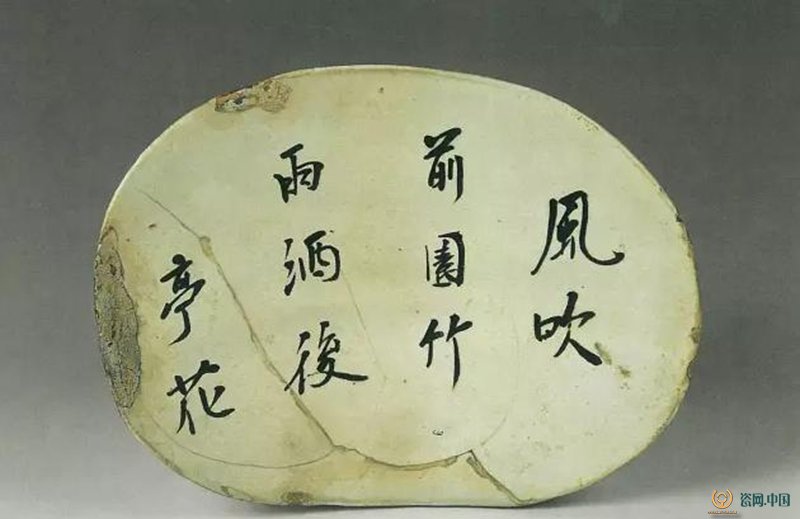 風吹
前園竹
雨洒後
亭花
瓷网.中国